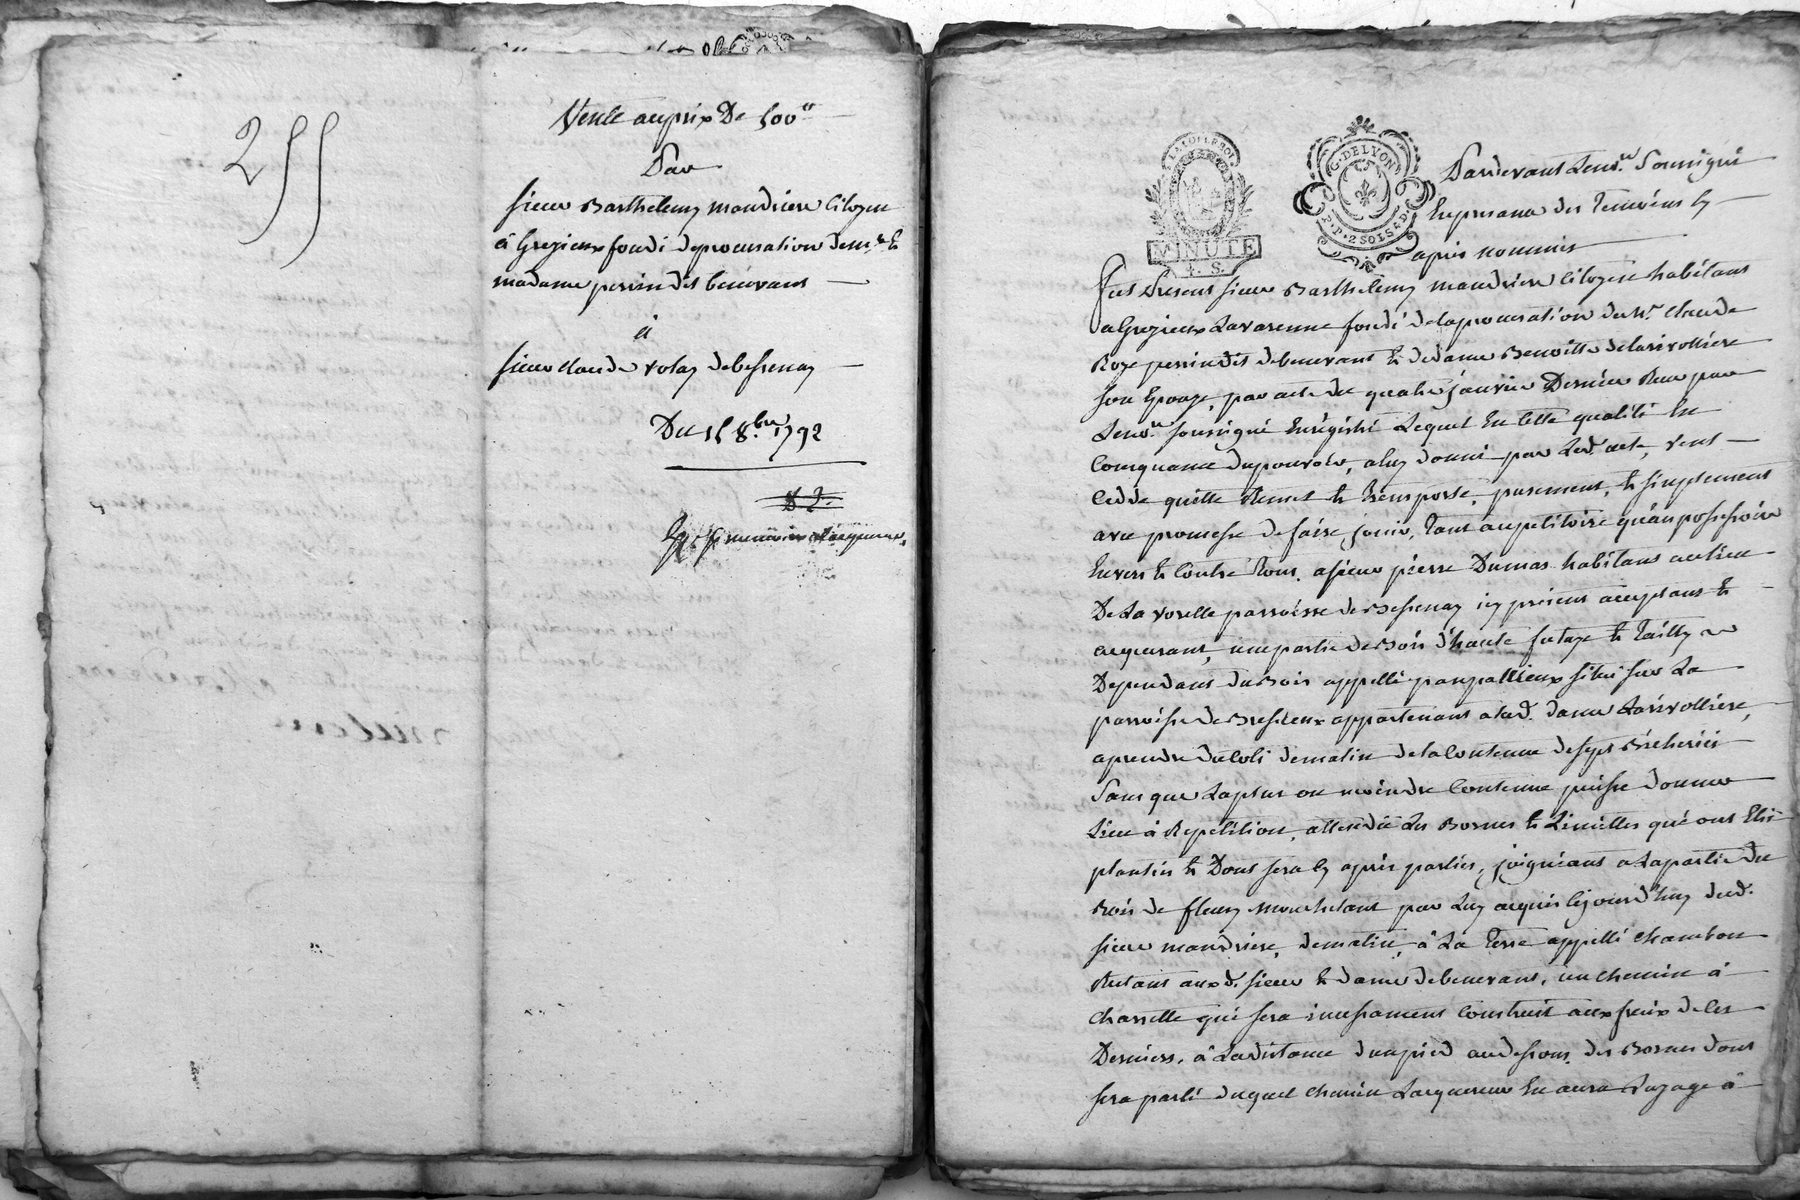 255
Vente au prix De 500 tt
Par
sieur Barthelemy mandriere Citoyen
à Grezieux fondé de procuration de mr. &
madame perrin dit benevant
à
sieur claude volay de bessenay
Du 15 8.bre 1792
LA LOI LE ROI
MINUTE
4. S.
G. DE LYON
P. P. 2 SOLS 8 D.
Pardevant Le no.re Soussigné
En presence des Temoins Cy
après nommés
Fut Present sieur Barthelemy mandriere Citoyen habitant
a Grezieux Lavarenne fondé de la procuration du Sr. claude
Roze perrin dit de benevant & de dame Benoitte de la rivolliere
son Epouze, par acte du quatre janvier Dernier Reçu par
Le no.re soussigné Enregistré Lequel En cette qualité En
Consequence du pouvoir, a luy donné par Led. acte, vent
Cedde quitte Remet & Transporte, purement, & simplement
avec promesse de faire jouir, Tant au petitoire qu'au possessoire
Envers & Contre Tous, a sieur pierre Dumas habitant au lieu
De La vorelle parroisse de Bessenay icy present acceptant &
acquerant, une partie de Bois d'haute futaye & Tailly
Dependant du Bois appellé situé sur La
parroisse de Bressieux appartenant a lad. dame Larivolliere,
a prendre du Coté de matin de la Contenue de sept Bicherées
Sans que La plus ou moindre Contenue puisse donner
Lieu à Repetition, attendu Les Bornes & Limittes qui ont Eté
plantés & Dont sera Cy après parlés, joignant a La partie du
Bois de fleury par Luy acquis Cejourd'huy dud.
sieur mandriere, de matin, à La Terre appellé chambon
Restant aux d. sieur & dame de benevant, un chemin à
charrette qui sera incessament Construit aux fraix de Ces
Derniers, à La distance d'un pied au dessous des Bornes dont
sera parlé duquel chemin L'acquereur En aura L'uzage à